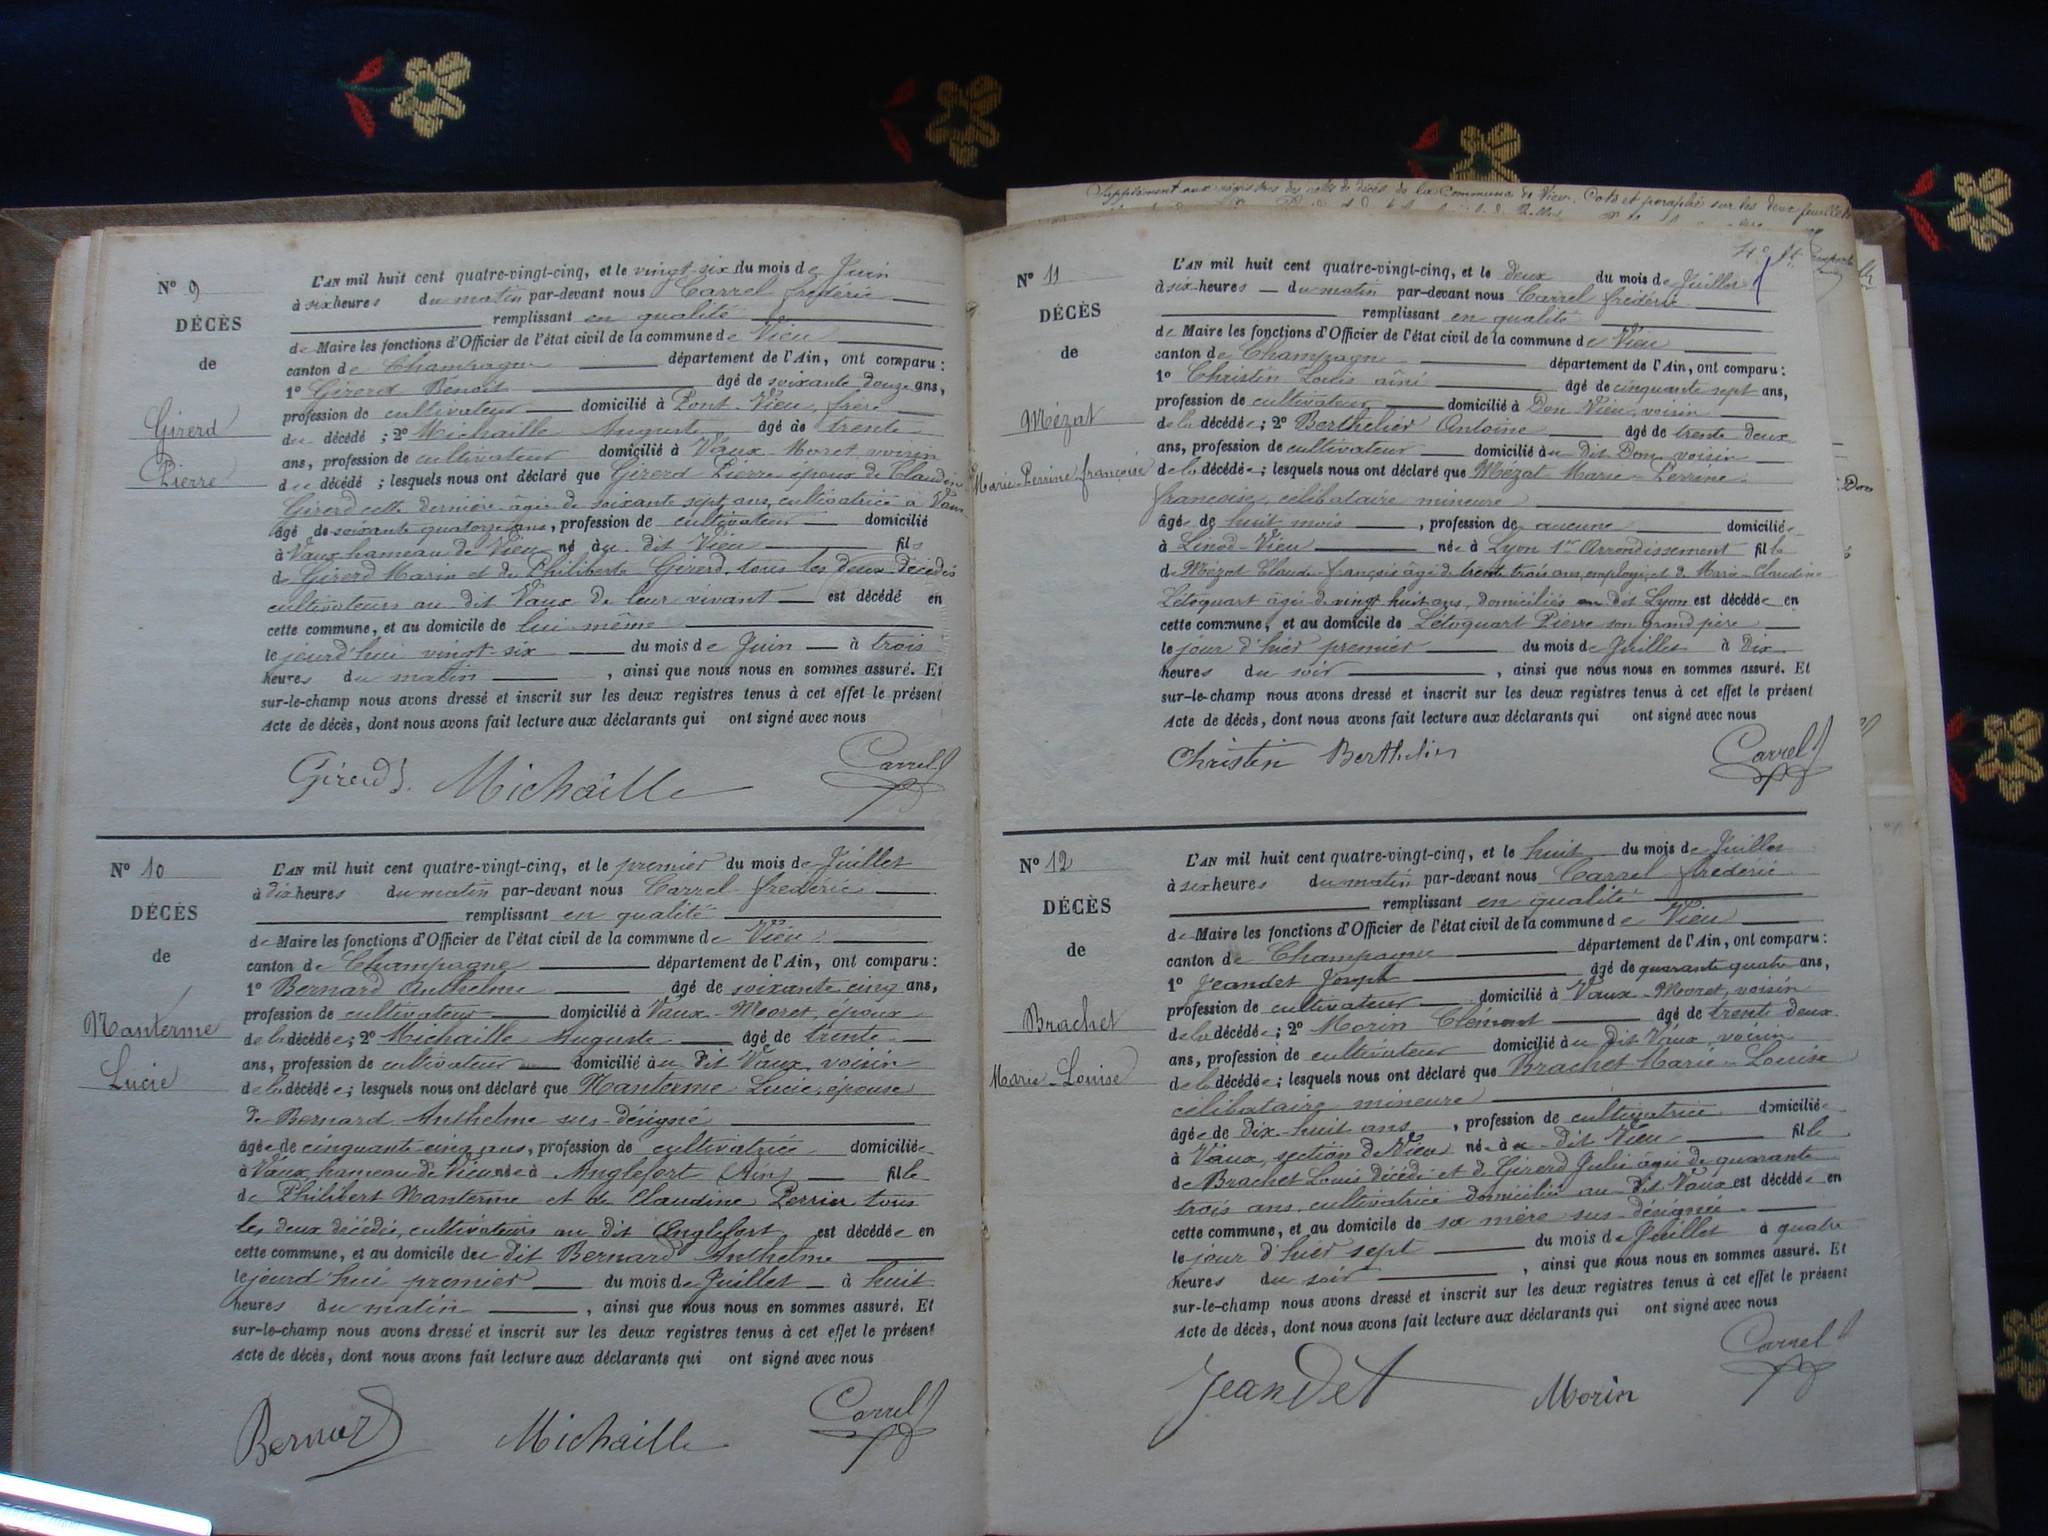 N° 9
DÉCÈS
de
Girerd
Pierre
L'AN mil huit cent quatre-vingt-cinq, et le vingt-six du mois de Juin
à six heures du matin par-devant nous Carrel frédéric
remplissant en qualité
de Maire les fonctions d'Officier de l'état civil de la commune de Vieu
canton de Champagne département de l'Ain, ont comparu :
1° Girerd Bénoit âgé de soixante douze ans,
profession de cultivateur domicilié à Pont-Vieu, frère
du décédé ; 2° Michaille Auguste âgé de trente
ans, profession de cultivateur domicilié à Vaux-Moret, voisin
du décédé ; lesquels nous ont déclaré que Girerd Pierre époux de Claudine
Girerd cette dernière âgée de soixante sept ans, cultivatrice à Vaux
âgé de soixante quatorze ans, profession de cultivateur domicilié
à Vaux hameau de Vieu né au dit Vieu fils
de Girerd Marin et de Philiberte Girerd, tous les deux décédés
cultivateurs au dit Vaux de leur vivant est décédé en
cette commune, et au domicile de lui-même
le jourd'hui vingt-six du mois de Juin à trois
heures du matin , ainsi que nous nous en sommes assuré. Et
sur-le-champ nous avons dressé et inscrit sur les deux registres tenus à cet effet le présent
Acte de décès, dont nous avons fait lecture aux déclarants qui ont signé avec nous
Girerd Michaille Carrel
N° 10
DÉCÈS
de
Nanterme
Lucie
L'AN mil huit cent quatre-vingt-cinq, et le premier du mois de Juillet
à dix heures du matin par-devant nous Carrel frédéric
remplissant en qualité
de Maire les fonctions d'Officier de l'état civil de la commune de Vieu
canton de Champagne département de l'Ain, ont comparu :
1° Bernard Anthelme âgé de soixante cinq ans,
profession de cultivateur domicilié à Vaux-Moret, époux
de la décédée ; 2° Michaille Auguste âgé de trente
ans, profession de cultivateur domicilié au dit Vaux, voisin
de la décédée ; lesquels nous ont déclaré que Nanterme Lucie, épouse
de Bernard Anthelme sus-désigné
âgée de cinquante-cinq ans, profession de cultivatrice domiciliée
à Vaux, hameau de Vieu née à Anglefort (Ain) fille
de Philibert Nanterme et de Claudine Perrin tous
les deux décédés, cultivateurs au dit Anglefort est décédée en
cette commune, et au domicile du dit Bernard Anthelme
le jourd'hui premier du mois de Juillet à huit
heures du matin , ainsi que nous nous en sommes assuré. Et
sur-le-champ nous avons dressé et inscrit sur les deux registres tenus à cet effet le présent
Acte de décès, dont nous avons fait lecture aux déclarants qui ont signé avec nous
Bernard Michaille Carrel
Supplément aux registres des actes de décès de la Commune de Vieu. Coté et paraphé sur les deux feuillets
N° 11
DÉCÈS
de
Mézat
Marie-Perrine françoise
L'AN mil huit cent quatre-vingt-cinq, et le deux du mois de Juillet
à six heures du matin par-devant nous Carrel frédéric
remplissant en qualité
de Maire les fonctions d'Officier de l'état civil de la commune de Vieu
canton de Champagne département de l'Ain, ont comparu :
1° Christin Louis aîné âgé de cinquante sept ans,
profession de cultivateur domicilié à Don-Vieu, voisin
de la décédée ; 2° Berthelier Antoine âgé de trente deux
ans, profession de cultivateur domicilié au dit Don, voisin
de la décédée ; lesquels nous ont déclaré que Mézat Marie-Perrine
francoise, célibataire mineure
âgée de huit mois , profession de aucune domiciliée
à Linod-Vieu née à Lyon 1er Arrondissement fille
de Mézat Claude-françois âgé de trente trois ans, employé, et de Marie-Claudine
Létoquart âgée de vingt huit ans, domiciliés au dit Lyon est décédée en
cette commune, et au domicile de Létoquart Pierre son grand père
le jour d'hier premier du mois de Juillet à Dix
heures du soir , ainsi que nous nous en sommes assuré. Et
sur-le-champ nous avons dressé et inscrit sur les deux registres tenus à cet effet le présent
Acte de décès, dont nous avons fait lecture aux déclarants qui ont signé avec nous
Christin Berthelier Carrel
N° 12
DÉCÈS
de
Brachet
Marie-Louise
L'AN mil huit cent quatre-vingt-cinq, et le huit du mois de Juillet
à six heures du matin par-devant nous Carrel frédéric
remplissant en qualité
de Maire les fonctions d'Officier de l'état civil de la commune de Vieu
canton de Champagne département de l'Ain, ont comparu :
1° Jeandet Joseph âgé de quarante quatre ans,
profession de cultivateur domicilié à Vaux-Moret, voisin
de la décédée ; 2° Morin Clément âgé de trente deux
ans, profession de cultivateur domicilié au dit Vaux, voisin
de la décédée ; lesquels nous ont déclaré que Brachet Marie-Louise
célibataire mineure
âgée de dix-huit ans , profession de cultivatrice domiciliée
à Vaux, section de Vieu née au dit Vieu fille
de Brachet Louis décédé et de Girerd Julie âgée de quarante
trois ans, cultivatrice domiciliée au dit Vaux est décédée en
cette commune, et au domicile de sa mère sus-désignée
le jour d'hier sept du mois de Juillet à quatre
heures du soir , ainsi que nous nous en sommes assuré. Et
sur-le-champ nous avons dressé et inscrit sur les deux registres tenus à cet effet le présent
Acte de décès, dont nous avons fait lecture aux déclarants qui ont signé avec nous
Jeandet Morin Carrel